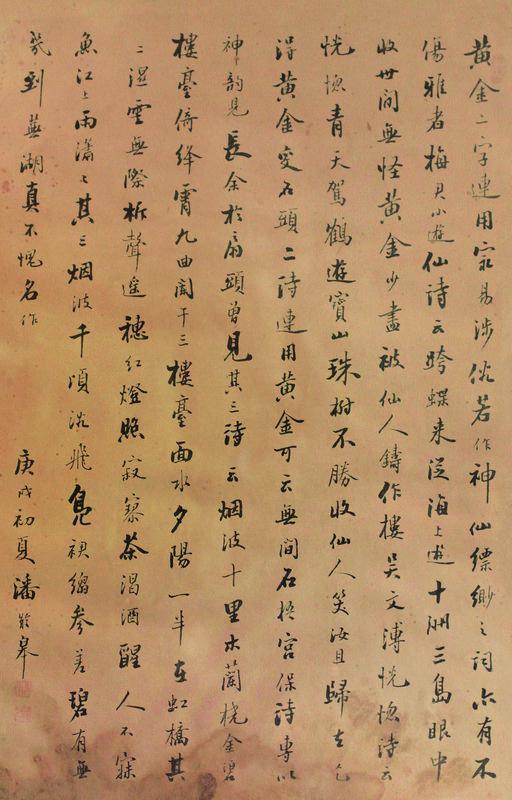 黄金二字連用最易涉俗若作神仙縹緲之詞亦有不
傷雅者梅君小遊仙詩云跨蝶来從海上遊十洲三島眼中
收世间無怪黄金少盡被仙人鑄作樓吴文溥恍惚诗云
恍惚青天駕鶴遊寶山珠樹不勝收仙人笑汝且歸去乞
得黄金变石頭二诗連用黄金可云無间石梧宮保詩專以
神韵見長余於扇頭曾見其三诗云烟波十里木蘭橈金碧
樓臺倚絳霄九曲闌干三樓臺面水夕陽一半在虹橋其
二湿雲無際柝聲遥穗红燈照寂寥茶渴酒醒人不寐
魚江上雨瀟〻其三烟波千頃浴飛鳧裙縐参差碧有無
幾到蕪湖真不愧名作
庚戌初夏潘齡皋